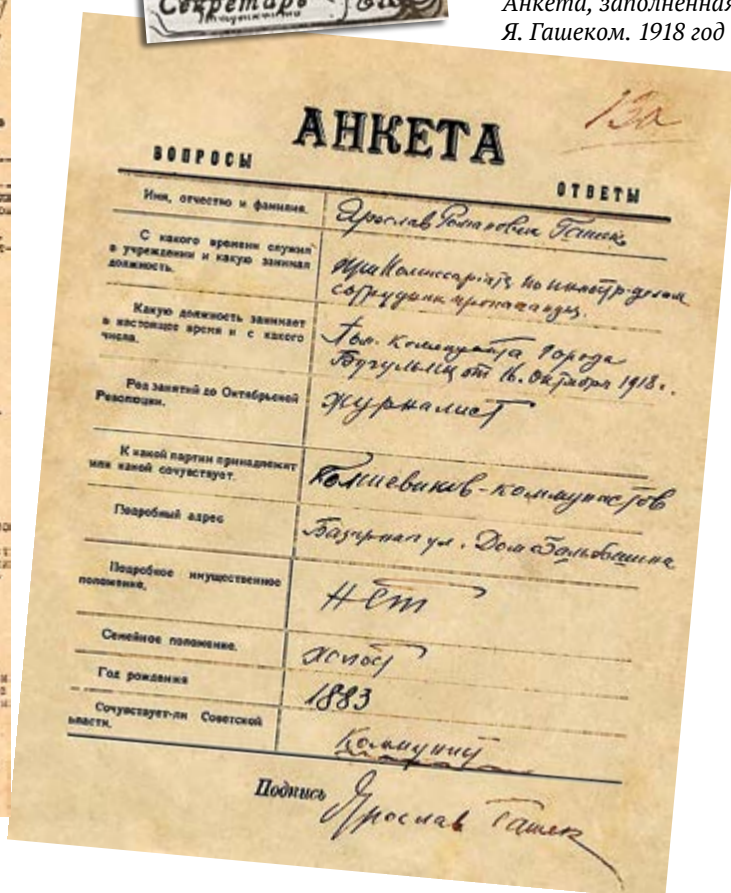 Секретарь
Анкета, заполненная
Я. Гашеком. 1918 год
13а
АНКЕТА
ВОПРОСЫ
ОТВЕТЫ
Имя, отчество и фамилия.
Ярослав Романович Гашек
С какого времени служил
в учреждении и какую занимал
должность.
при Комиссариате по иностр. делам
сотрудник пропаганды.
Какую должность занимает
в настоящее время и с какого
числа.
Пом. коменданта города
Бугульмы от 16. октября 1918 г.
Род занятий до Октябрьской
Революции.
журналист
К какой партии принадлежит
или какой сочувствует.
большевиков-коммунистов
Подробный адрес
Базарная ул. Дом
Подробное имущественное
положение.
нет
Семейное положение.
холост
Год рождения
1883
Сочувствует-ли Советской
власти.
Коммунист
Подпись
Ярослав Гашек